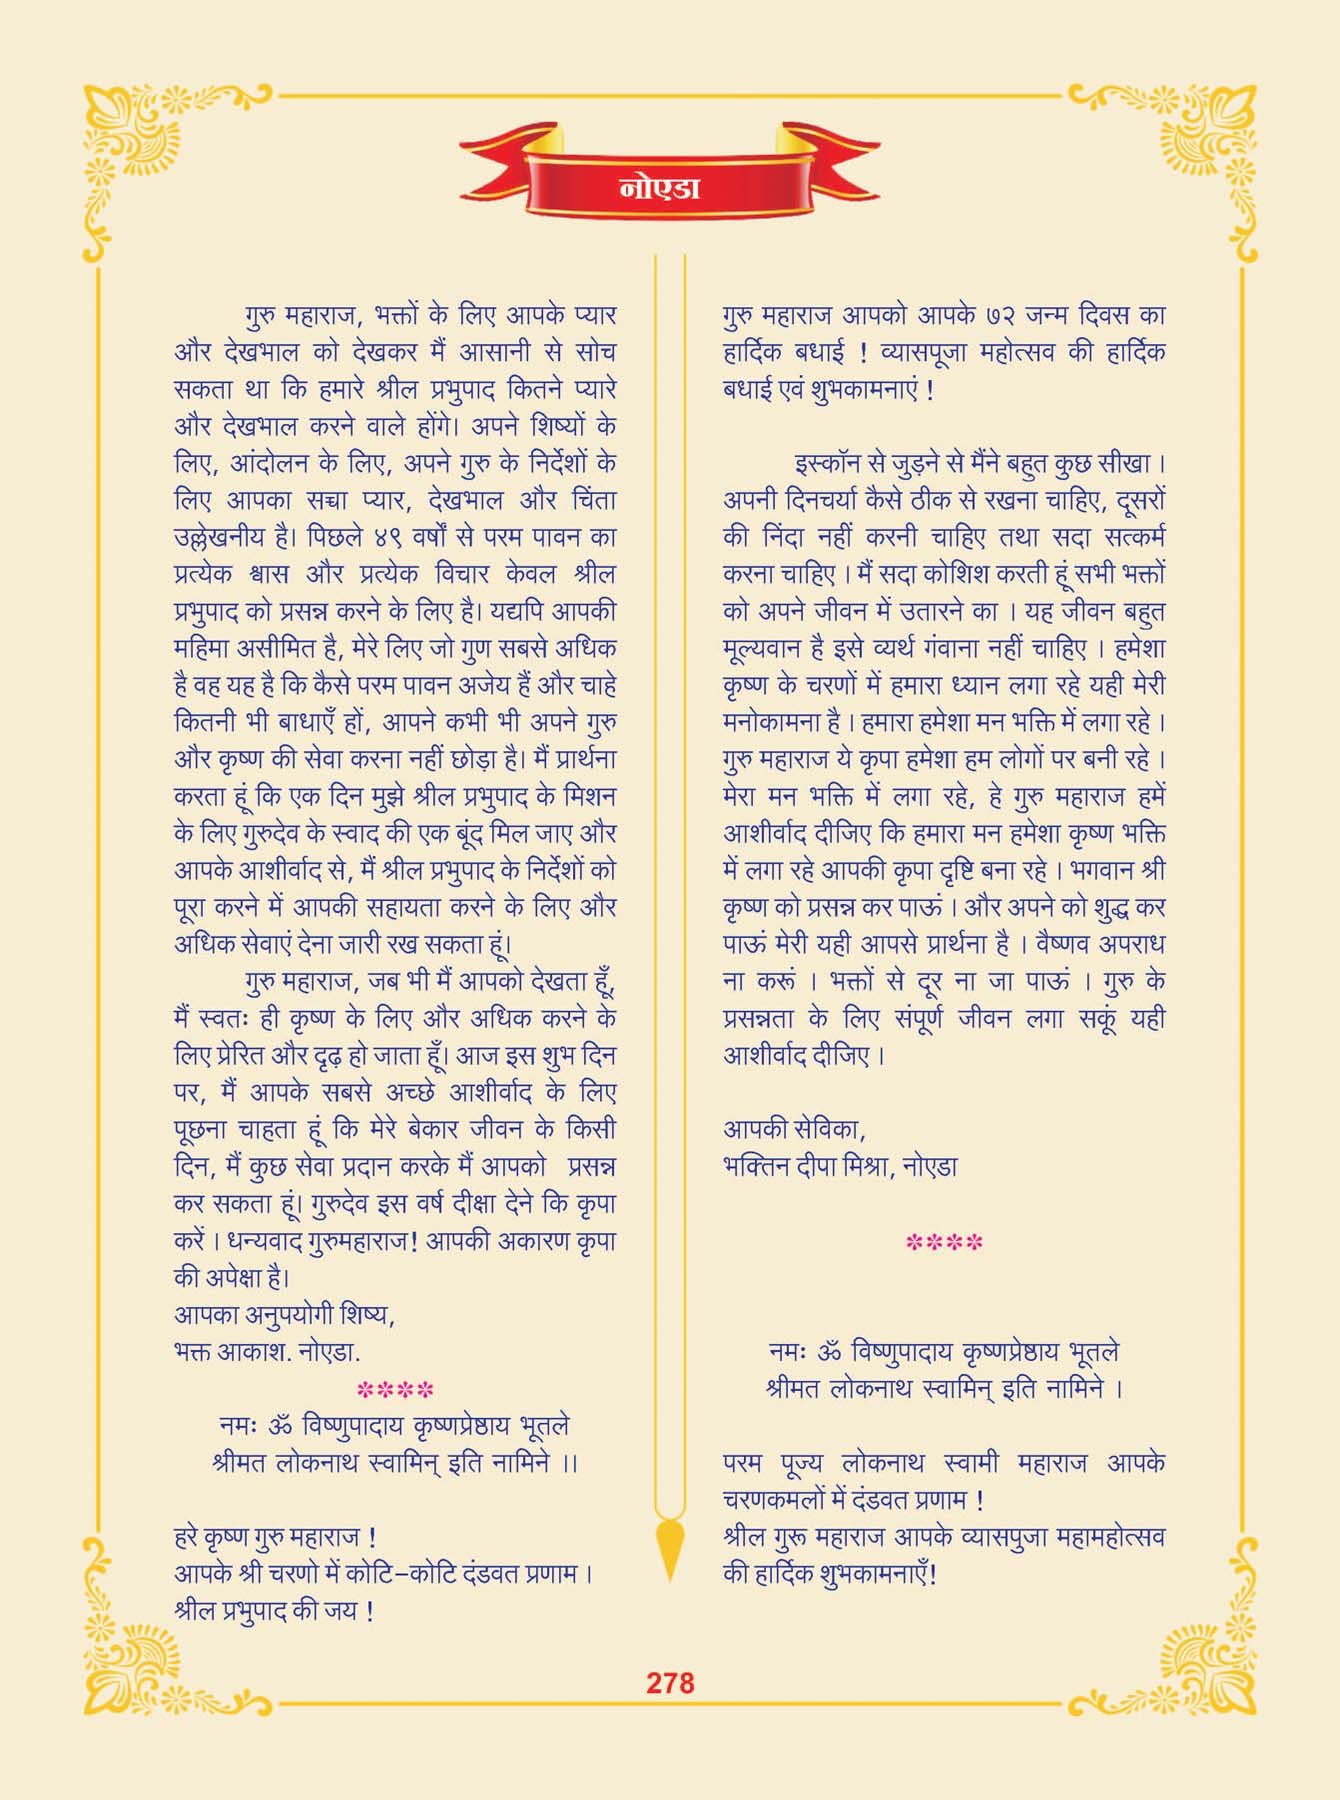 नोएडा
गुरु महाराज, भक्तों के लिए आपके प्यार
और देखभाल को देखकर मैं आसानी से सोच
सकता था कि हमारे श्रील प्रभुपाद कितने प्यारे
और देखभाल करने वाले होंगे। अपने शिष्यों के
लिए, आंदोलन के लिए, अपने गुरु के निर्देशों के
लिए आपका सच्चा प्यार, देखभाल और चिंता
उल्लेखनीय है। पिछले ४९ वर्षों से परम पावन का
प्रत्येक श्वास और प्रत्येक विचार केवल श्रील
प्रभुपाद को प्रसन्न करने के लिए है। यद्यपि आपकी
महिमा असीमित है, मेरे लिए जो गुण सबसे अधिक
है वह यह है कि कैसे परम पावन अजेय हैं और चाहे
कितनी भी बाधाएँ हों, आपने कभी भी अपने गुरु
और कृष्ण की सेवा करना नहीं छोड़ा है। मैं प्रार्थना
करता हूं कि एक दिन मुझे श्रील प्रभुपाद के मिशन
के लिए गुरुदेव के स्वाद की एक बूंद मिल जाए और
आपके आशीर्वाद से, मैं श्रील प्रभुपाद के निर्देशों को
पूरा करने में आपकी सहायता करने के लिए और
अधिक सेवाएं देना जारी रख सकता हूं।
गुरु महाराज, जब भी मैं आपको देखता हूँ,
मैं स्वतः ही कृष्ण के लिए और अधिक करने के
लिए प्रेरित और दृढ़ हो जाता हूँ। आज इस शुभ दिन
पर, मैं आपके सबसे अच्छे आशीर्वाद के लिए
पूछना चाहता हूं कि मेरे बेकार जीवन के किसी
दिन, मैं कुछ सेवा प्रदान करके मैं आपको प्रसन्न
कर सकता हूं। गुरुदेव इस वर्ष दीक्षा देने कि कृपा
करें । धन्यवाद गुरुमहाराज! आपकी अकारण कृपा
की अपेक्षा है।
आपका अनुपयोगी शिष्य,
भक्त आकाश. नोएडा.
****
नमः ॐ विष्णुपादाय कृष्णप्रेष्ठाय भूतले
श्रीमत लोकनाथ स्वामिन् इति नामिने ।।
हरे कृष्ण गुरु महाराज !
आपके श्री चरणो में कोटि-कोटि दंडवत प्रणाम ।
श्रील प्रभुपाद की जय !
गुरु महाराज आपको आपके ७२ जन्म दिवस का
हार्दिक बधाई ! व्यासपूजा महोत्सव की हार्दिक
बधाई एवं शुभकामनाएं !
इस्कॉन से जुड़ने से मैंने बहुत कुछ सीखा ।
अपनी दिनचर्या कैसे ठीक से रखना चाहिए, दूसरों
की निंदा नहीं करनी चाहिए तथा सदा सत्कर्म
करना चाहिए । मैं सदा कोशिश करती हूं सभी भक्तों
को अपने जीवन में उतारने का । यह जीवन बहुत
मूल्यवान है इसे व्यर्थ गंवाना नहीं चाहिए । हमेशा
कृष्ण के चरणों में हमारा ध्यान लगा रहे यही मेरी
मनोकामना है । हमारा हमेशा मन भक्ति में लगा रहे ।
गुरु महाराज ये कृपा हमेशा हम लोगों पर बनी रहे ।
मेरा मन भक्ति में लगा रहे, हे गुरु महाराज हमें
आशीर्वाद दीजिए कि हमारा मन हमेशा कृष्ण भक्ति
में लगा रहे आपकी कृपा दृष्टि बना रहे । भगवान श्री
कृष्ण को प्रसन्न कर पाऊं । और अपने को शुद्ध कर
पाऊं मेरी यही आपसे प्रार्थना है । वैष्णव अपराध
ना करूं । भक्तों से दूर ना जा पाऊं । गुरु के
प्रसन्नता के लिए संपूर्ण जीवन लगा सकूं यही
आशीर्वाद दीजिए ।
आपकी सेविका,
भक्तिन दीपा मिश्रा, नोएडा
****
नमः ॐ विष्णुपादाय कृष्णप्रेष्ठाय भूतले
श्रीमत लोकनाथ स्वामिन् इति नामिने ।
परम पूज्य लोकनाथ स्वामी महाराज आपके
चरणकमलों में दंडवत प्रणाम !
श्रील गुरू महाराज आपके व्यासपुजा महामहोत्सव
की हार्दिक शुभकामनाएँ!
278